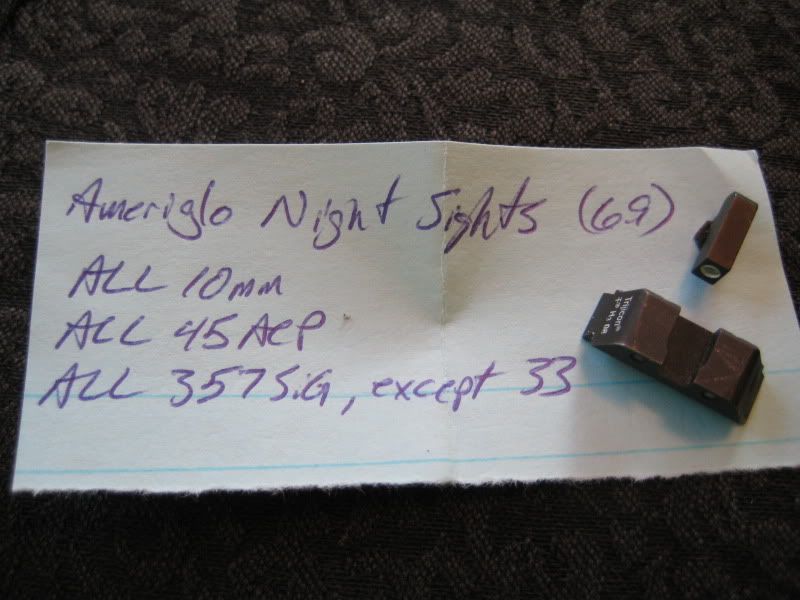 Ameriglo Night Sights (69)
ALL 10mm
ALL 45 ACP
ALL 357 SIG, except 33
Trijicon
H3